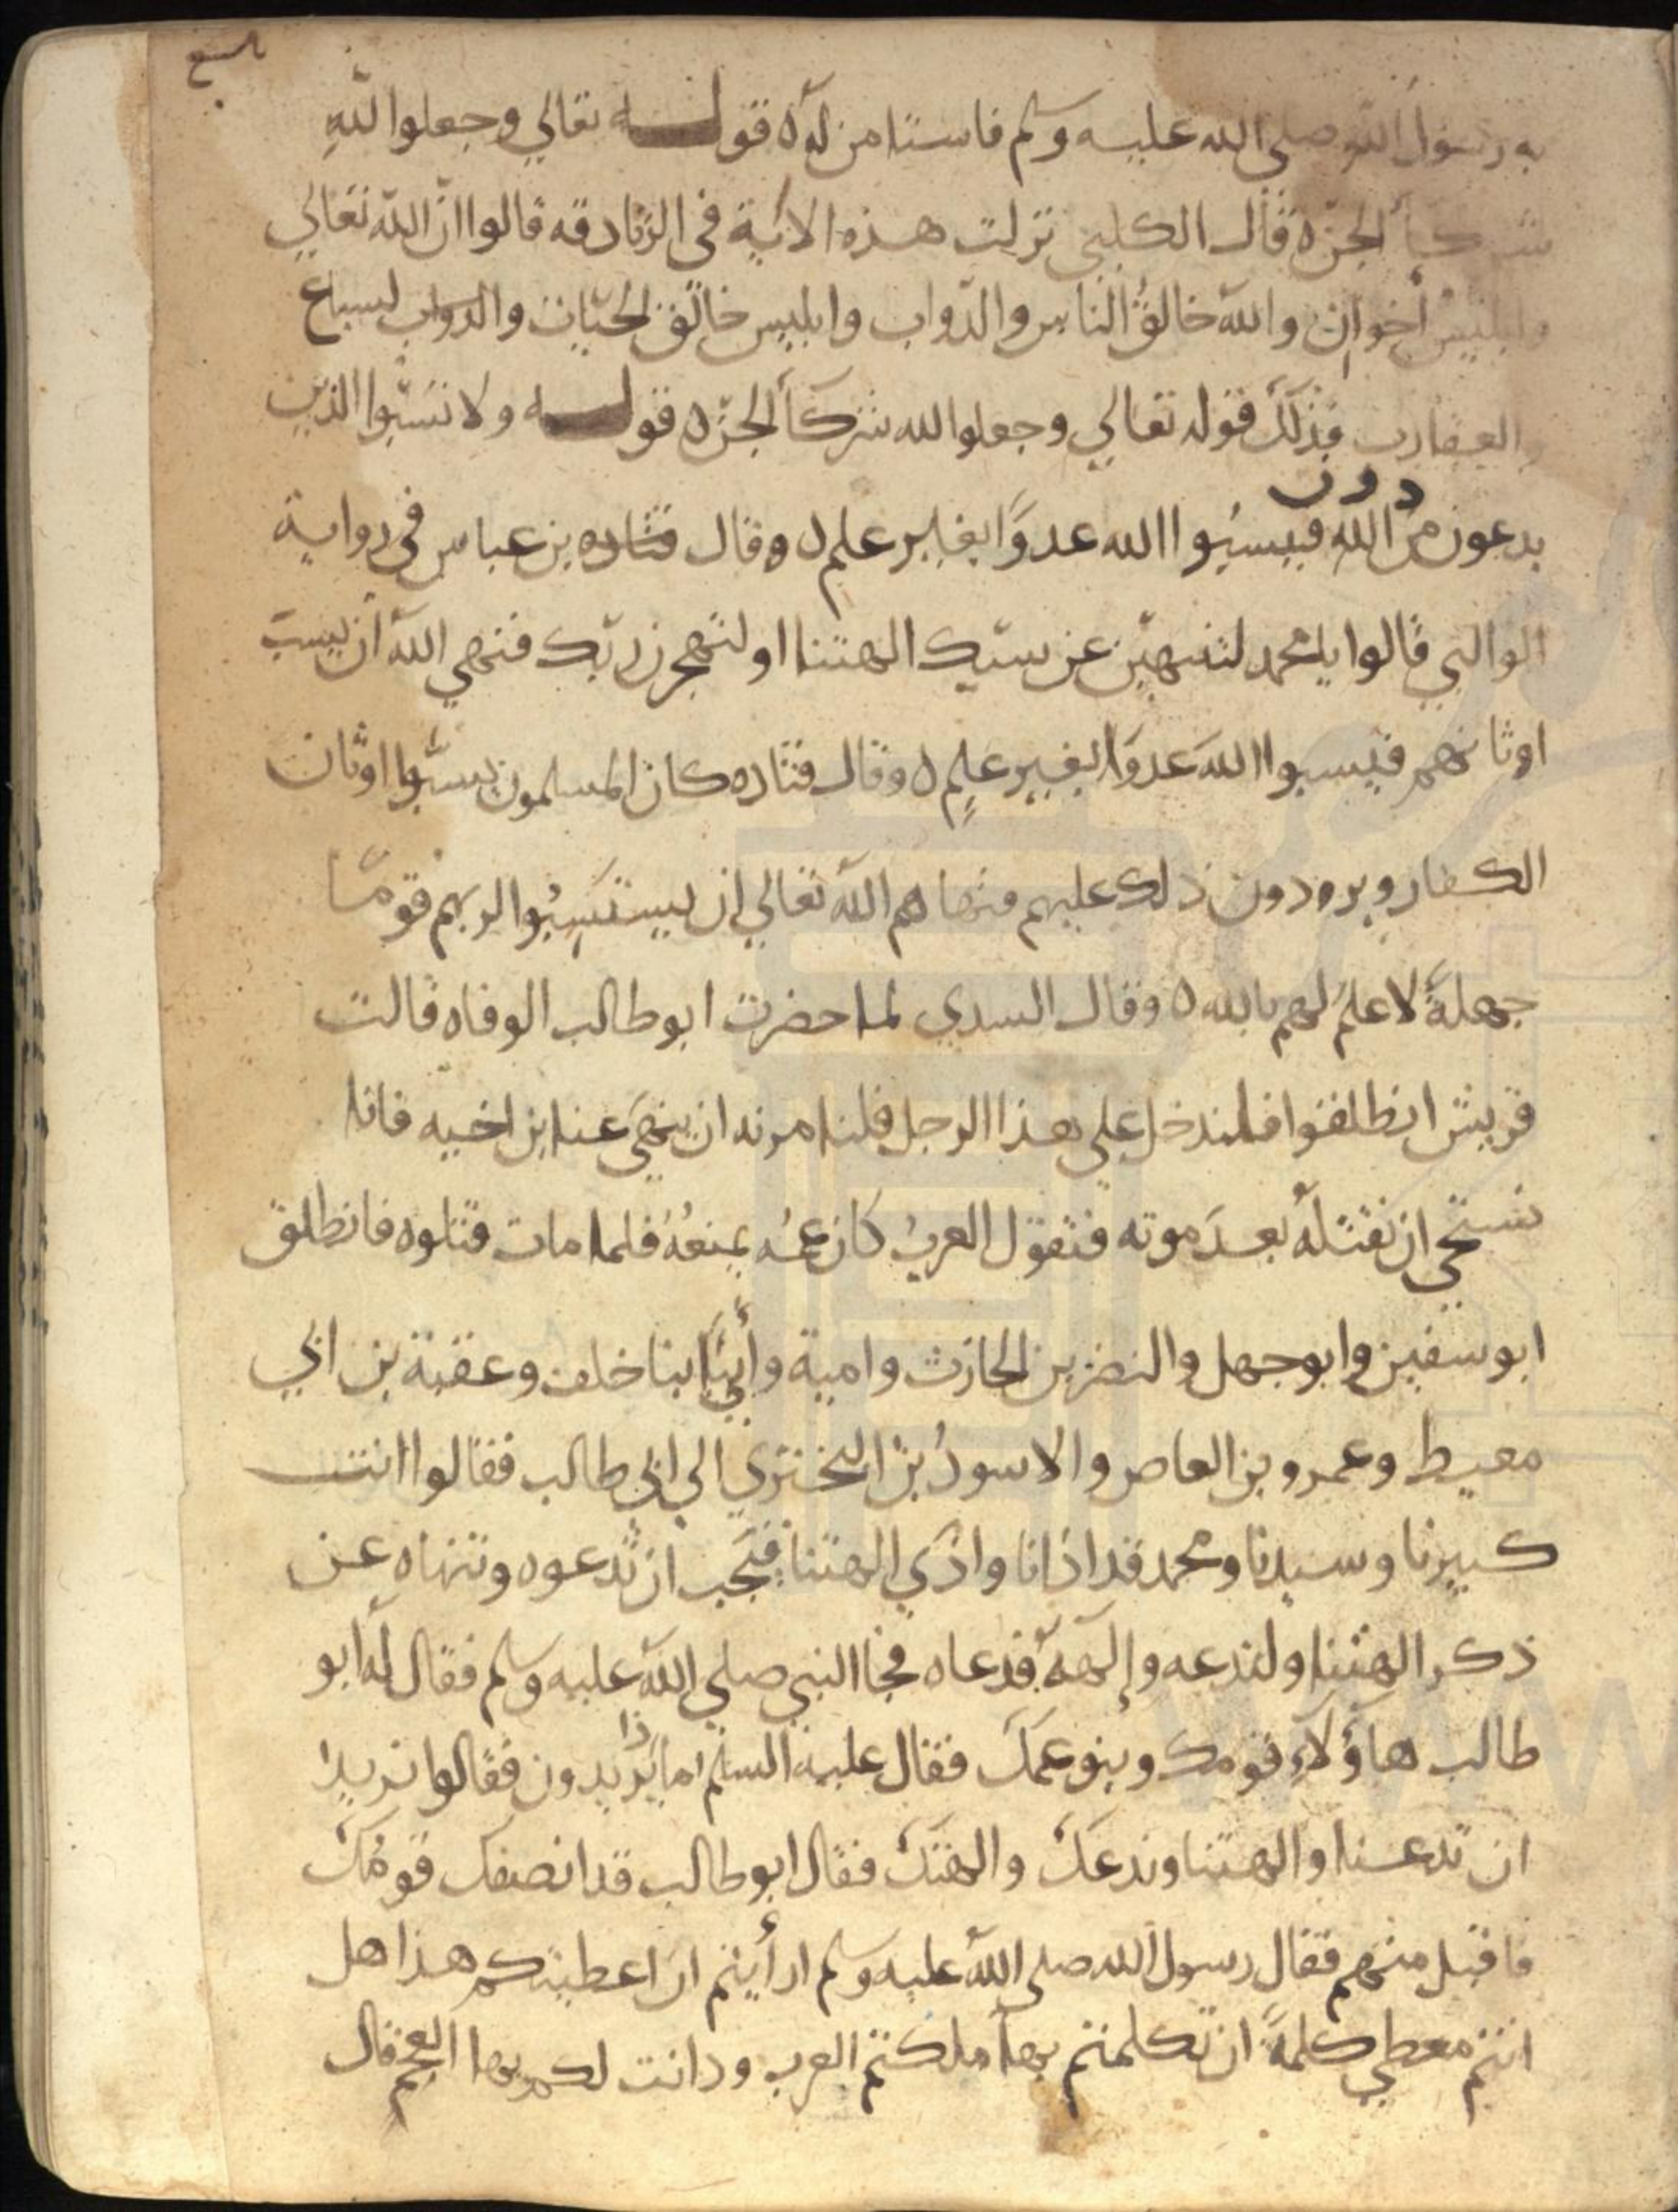 تاسع
به رسول الله صلى الله عليه وسلم فاستامن له ه قوله تعالي وجعلوا لله
شركأ الجن ه قال الكلبي نزلت هذه الاية في الزنادقه قالوا ان الله تعالي
وابليس أخوان والله خالق الناس والدواب وابليس خالق الحيات والدواب لسباع
والعقارب فذلك قوله تعالي وجعلوا لله شركأ الجن ه قوله ولا تسبوا الذين
يدعون من دون الله فيسبوا الله عدوا بغير علم ه وقال قتاده بن عباس في رواية
الوالبي قالوا يا محمد لتنتهين عن سبك الهتنا او لنهجرن ربك فنهي الله ان يسب
اوثانهم فيسبوا الله عدوا بغير علم ه وقال قتاده كان المسلمون يسبوا اوثان
الكفار ويردون ذلك عليهم فنهاهم الله تعالي ان يستسبوا لربهم قوما
جهلة لا علم لهم بالله ه وقال السدي لما حضرت ابو طالب الوفاه قالت
قريش انطلقوا فلندخل علي هذا الرجل فلنامرنه ان ينهي عنا ابن اخيه فانا
نستحي ان نقتله بعد موته فتقول العرب كان عمه يمنعه فلما مات قتلوه فانطلق
ابو سفين وابو جهل والنضر بن الحارث وامية وأبيا ابنا خلف وعقبة بن ابي
معيط وعمرو بن العاص والاسود بن البختري الي ابي طالب فقالوا انت
كبيرنا وسيدنا ومحمد قد اذانا واذي الهتنا فتحب ان تدعوه وتنهاه عن
ذكر الهتنا ولندعه وإلهه فدعاه فجا النبي صلي الله عليه وسلم فقال له ابو
طالب هاؤلاء قومك وبنو عمك فقال عليه السلم ماذا يريدون فقالوا نريد
ان تدعنا والهتنا وندعك والهتك فقال ابو طالب قد انصفك قومك
فاقبل منهم فقال رسول الله صلي الله عليه وسلم ارأيتم ان اعطيتكم هذا هل
انتم معطي كلمة ان تكلمتم بها ملكتم العرب ودانت لكم بها العجم قال